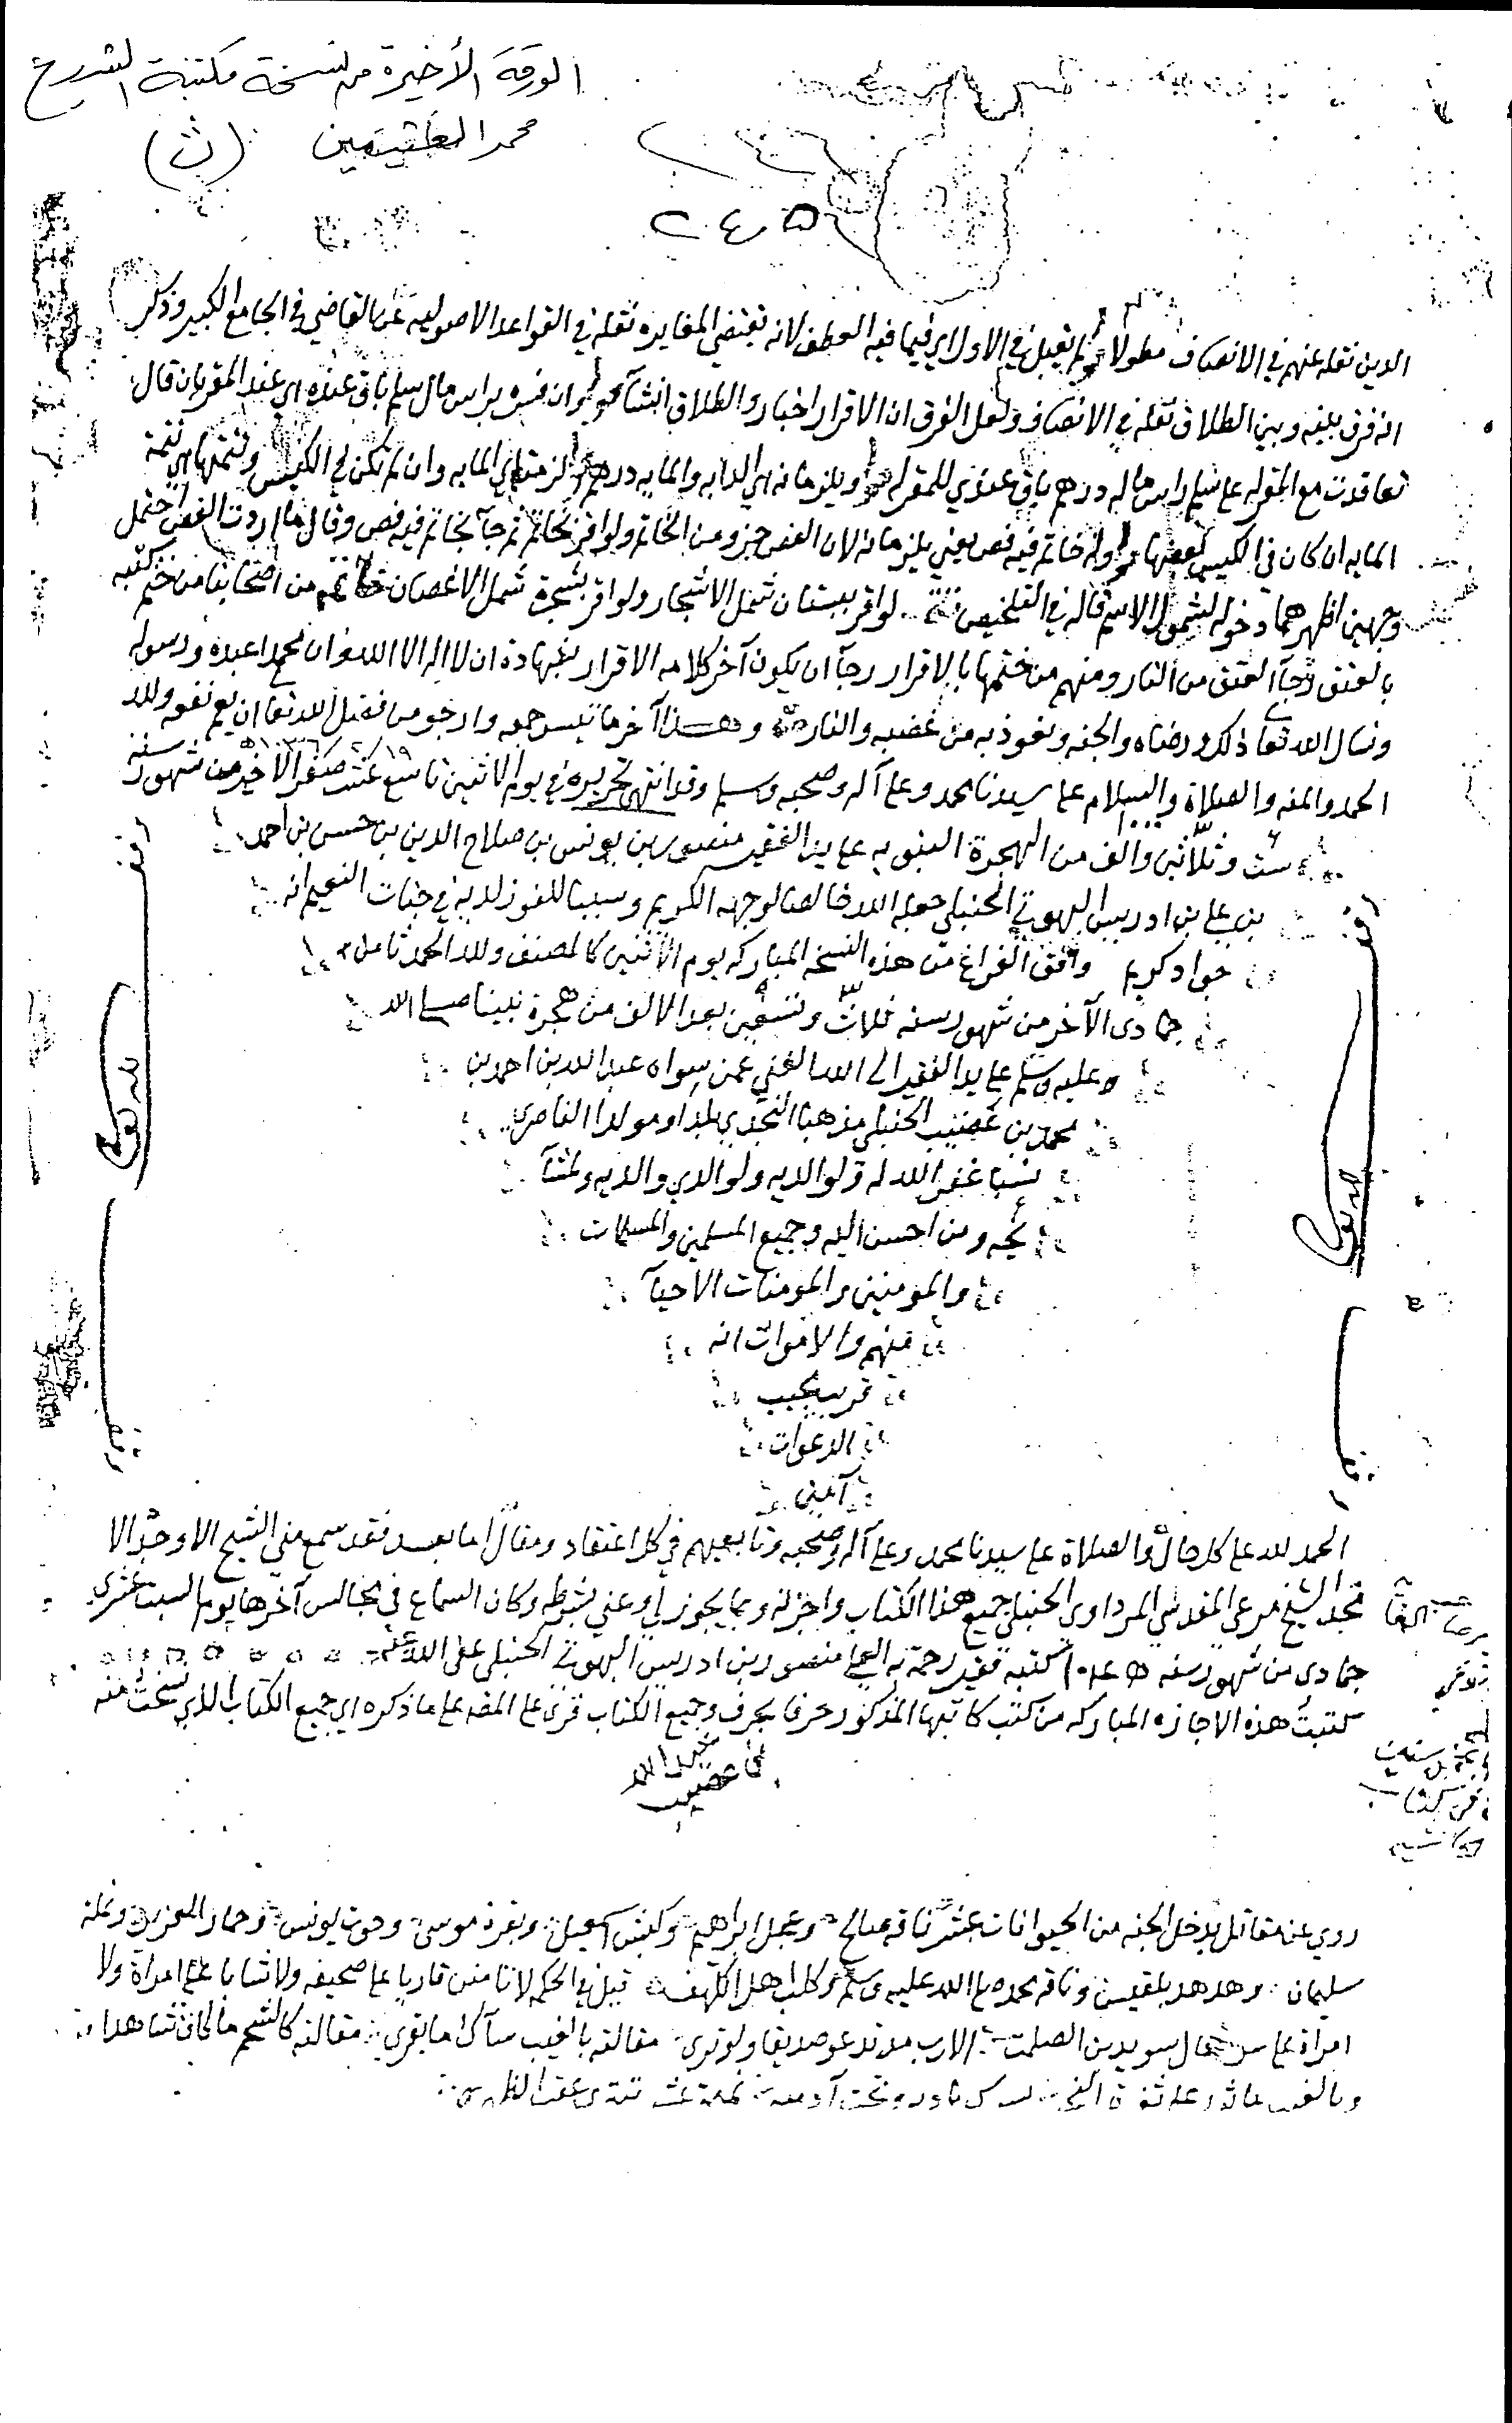 الورقة الأخيرة من نسخة مكتبة الشيخ
محمد العثيمين (ث)
٢٤٥
الدين نقله عنهم في الانصاف مطولا ولم يقبل في الاول اي فيما فيه العطف لانه يقتضي المغايره نقله في القواعد الاصوليه عن القاضي في الجامع الكبير وذكر
انه فرق بينه وبين الطلاق نقله في الانصاف ولعل الفرق ان الاقرار اخبار والطلاق انشآ وان فسره براس مال سلم باق عنده اي عند المقر بان قال
تعاقدت مع المقر له على سلم راس ماله درهم باق عندي للمقر له ويلزمانه اي الدابه والمايه درهم لزمته اي المايه وان لم تكن في الكيس وتتمتها اي تتمة
المايه ان كان في الكيس بعضها وله خاتم فيه فص يعني يلزمانه لان الفص جزو من الخاتم ولو اقر بخاتم ثم جآ بخاتم فيه فص وقال ما اردت الفص احتمل
وجهين اظهرهما دخوله لشمول الاسم قاله في التلخيص تتمة لو اقر ببستان شمل الاشجار ولو اقر بشجرة شمل الاغصان خاتمة من اصحابنا من ختم كتبه
بالعتق رجآ العتق من النار ومنهم من ختمها بالاقرار رجآ ان يكون آخر كلامه الاقرار بشهادة ان لا اله الا الله وان محمدا عبده ورسوله
ونسال الله تعالى ذلك ورضاه والجنه ونعوذ به من غضبه والنار وهذا آخر ما تيسر جمعه وارجو من فضل الله تعا ان يعم نفعه ولله
الحمد والمنه والصلاة والسلام على سيدنا محمد وعلى آله وصحبه وسلم وقد انتهى تحريره في يوم الاثنين تاسع عشر صفر الاخير من شهور سنة
ست وثلاثين والف من الهجرة النبويه على يد الفقير منصور بن يونس بن صلاح الدين بن حسن بن احمد
بن علي بن ادريس البهوتي الحنبلي جعله الله خالصا لوجهه الكريم وسببا للفوز لديه في جنات النعيم انه
جواد كريم وافق الفراغ من هذه النسخه المباركه يوم الاثنين كالمصنف ولله الحمد ثامن
جمادى الآخر من شهور سنه ثلاث وتسعين بعد الالف من هجرة نبينا صلى الله
عليه وسلم على يد الفقير الى الله الغني عمن سواه عبد الله بن احمد بن
محمد بن عضيب الحنبلي مذهبا النجدي بلدا ومولدا الناصري
نسبا غفر الله له ولوالديه ولوالدي والديه ولمشآ
يخه ومن احسن اليه وجميع المسلمين والمسلمات
والمومنين والمومنات الاحيآ
منهم والاموات انه
قريب مجيب
الدعوات
آمين
وقف
لله تعالى
وقف
لله تعالى
الحمد لله على كل حال والصلاة على سيدنا محمد وعلى آله وصحبه وتابعيهم في كل اعتقاد ومقال اما بعد فقد سمع مني الشيخ الاوحد الا
مجد الشيخ مرعي المقدسي المرداوي الحنبلي جميع هذا الكتاب واجزته وبما يجوز لي وعني بشرطه وكان السماع في مجالس آخرها يوم السبت عشري
جمادى من شهور سنه ١٠٤٥ كتبه فقير رحمة ربه العلي منصور بن ادريس البهوتي الحنبلي عفى الله عنه
كتبت هذه الاجازه المباركه من كتب كاتبها المذكور حرفا بحرف وجميع الكتاب قرى على المصنف على ما ذكره اي جميع الكتاب الذي نسخت منه
عبد الله
بن عضيب
روي عن مقاتل يدخل الجنه من الحيوانات عشر ناقه صالح وعجل ابراهيم وكبش اسمعيل وبقرة موسى وحوت يونس وحمار العزير ونملة
سليمان وهدهد بلقيس وناقه محمد صلى الله عليه وسلم وكلب اهل الكهف قيل في الحكم لا تامنن قاريا على صحيفه ولا شابا على امراة ولا
امراة على سر قال سويد بن الصلت الا رب من تدعو صديقا ولو ترى مقالته بالغيب سآك ما يفري مقالته كالشحم ما كان شاهدا
وبالغيب ماثور على ثغرة النحر